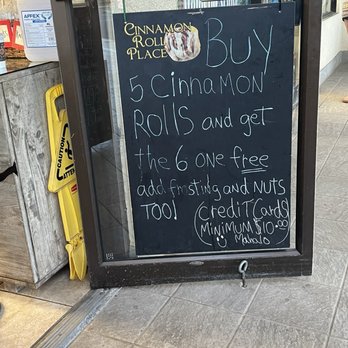 APFEX
CINNAMON
ROLL
PLACE
BUY
5 CINNAMON
ROLLS and get
the 6 one free
add frosting and NUTS
TOO!
(CREDIT CARDS
MINIMUM $10.00
Mahalo)
CAUTION